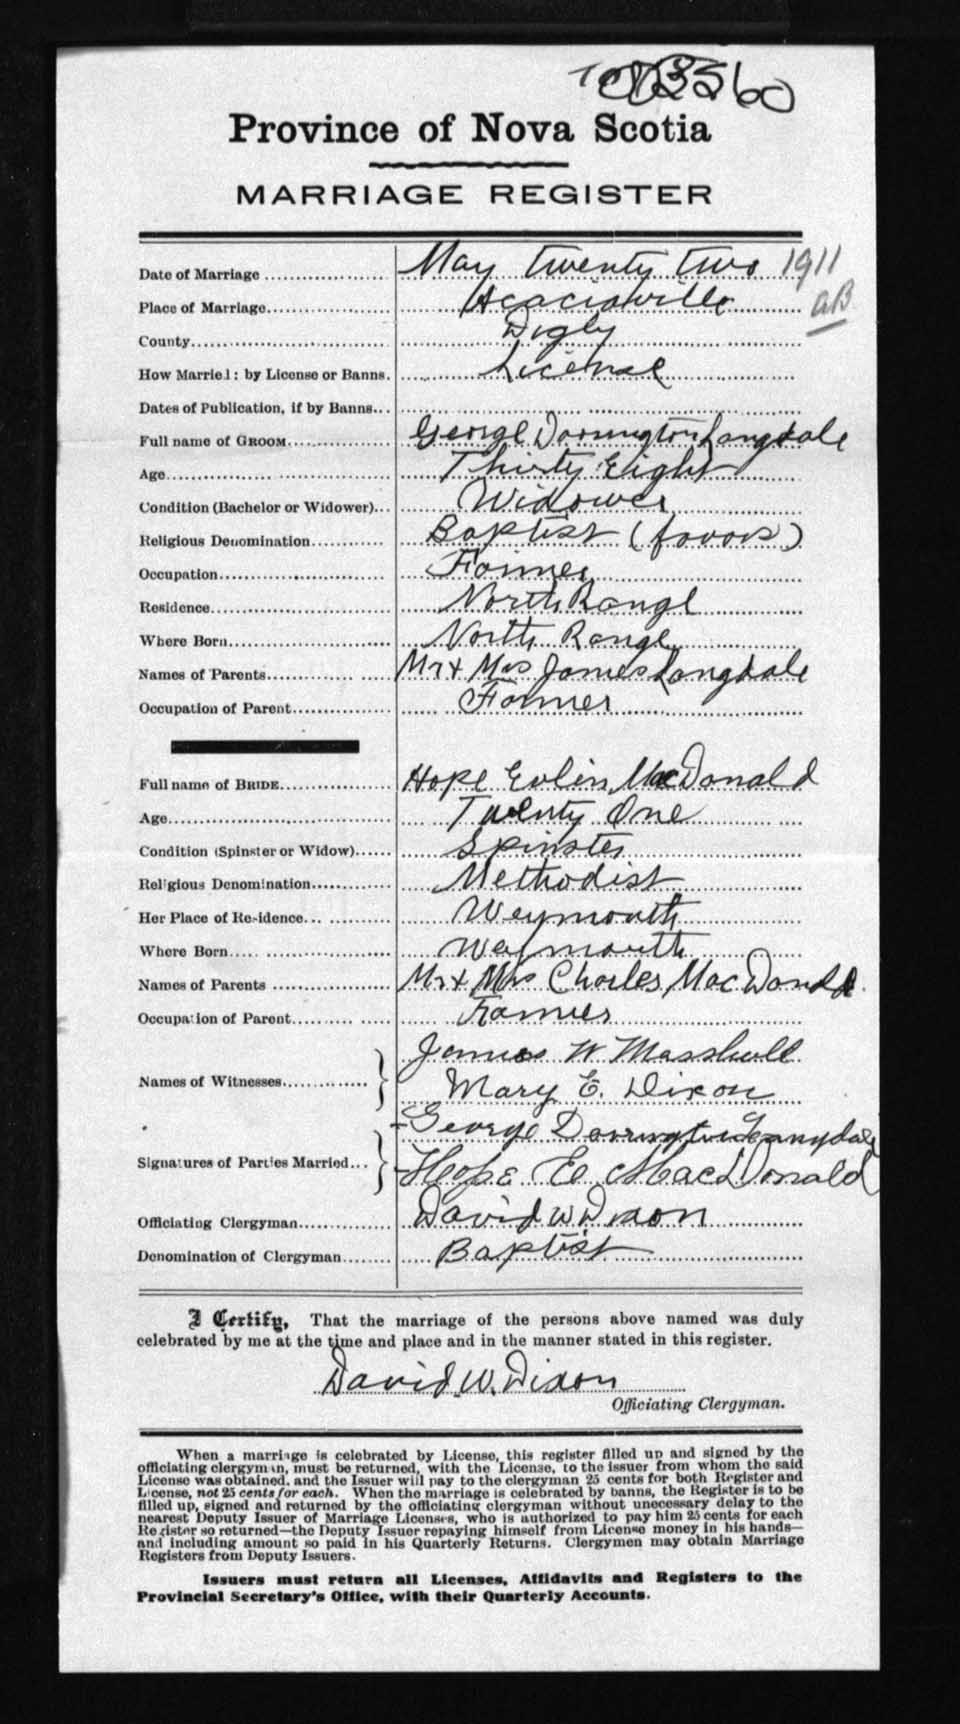 Province of Nova Scotia
MARRIAGE REGISTER
Date of Marriage May twenty two 1911
Place of Marriage Acaciaville aB
County Digby
How Married: by License or Banns. License
Dates of Publication, if by Banns
Full name of GROOM George Dorrington Langdale
Age Thirty Eight
Condition (Bachelor or Widower) Widower
Religious Denomination Baptist (favors)
Occupation Farmer
Residence North Range
Where Born North Range
Names of Parents Mr + Mrs James Langdale
Occupation of Parent Farmer
Full name of BRIDE Hope Evlin MacDonald
Age Twenty One
Condition (Spinster or Widow) Spinster
Religious Denomination Methodist
Her Place of Residence Weymouth
Where Born Weymouth
Names of Parents Mr + Mrs Charles MacDonald
Occupation of Parent Farmer
Names of Witnesses James W Marshall
Mary E. Dixon
Signatures of Parties Married George Dorrington Langdale
Hope E MacDonald
Officiating Clergyman David W Dixon
Denomination of Clergyman Baptist
I Certify, That the marriage of the persons above named was duly
celebrated by me at the time and place and in the manner stated in this register.
David W. Dixon
Officiating Clergyman.
When a marriage is celebrated by License, this register filled up and signed by the
officiating clergyman, must be returned, with the License, to the issuer from whom the said
License was obtained, and the Issuer will pay to the clergyman 25 cents for both Register and
License, not 25 cents for each. When the marriage is celebrated by banns, the Register is to be
filled up, signed and returned by the officiating clergyman without unecessary delay to the
nearest Deputy Issuer of Marriage Licenses, who is authorized to pay him 25 cents for each
Register so returned—the Deputy Issuer repaying himself from License money in his hands—
and including amount so paid in his Quarterly Returns. Clergymen may obtain Marriage
Registers from Deputy Issuers.
Issuers must return all Licenses, Affidavits and Registers to the
Provincial Secretary's Office, with their Quarterly Accounts.